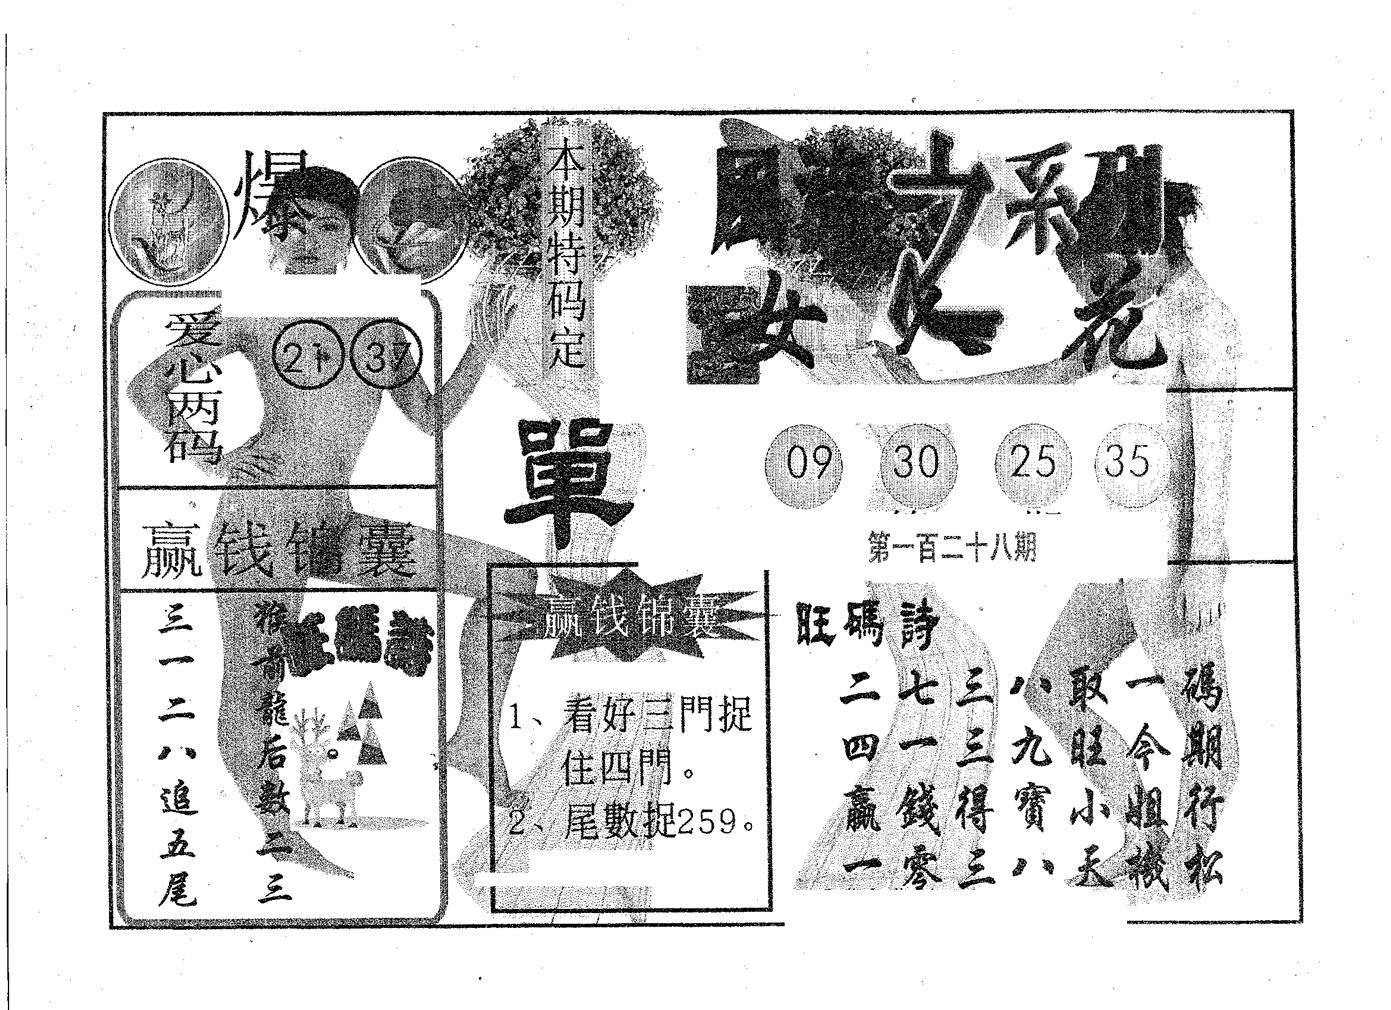 爆
本期特码定
單
爱心两码
21 37
赢钱锦囊
三一二八追五尾
猴前龍后數二三
旺碼詩
赢钱锦囊
1、看好三門捉
住四門。
2、尾數捉259。
之系列
女 花
09 30 25 35
第一百二十八期
旺碼詩
二七三八取一碼
四一三九旺今期
贏錢得寶小姐行
一零三八天機松